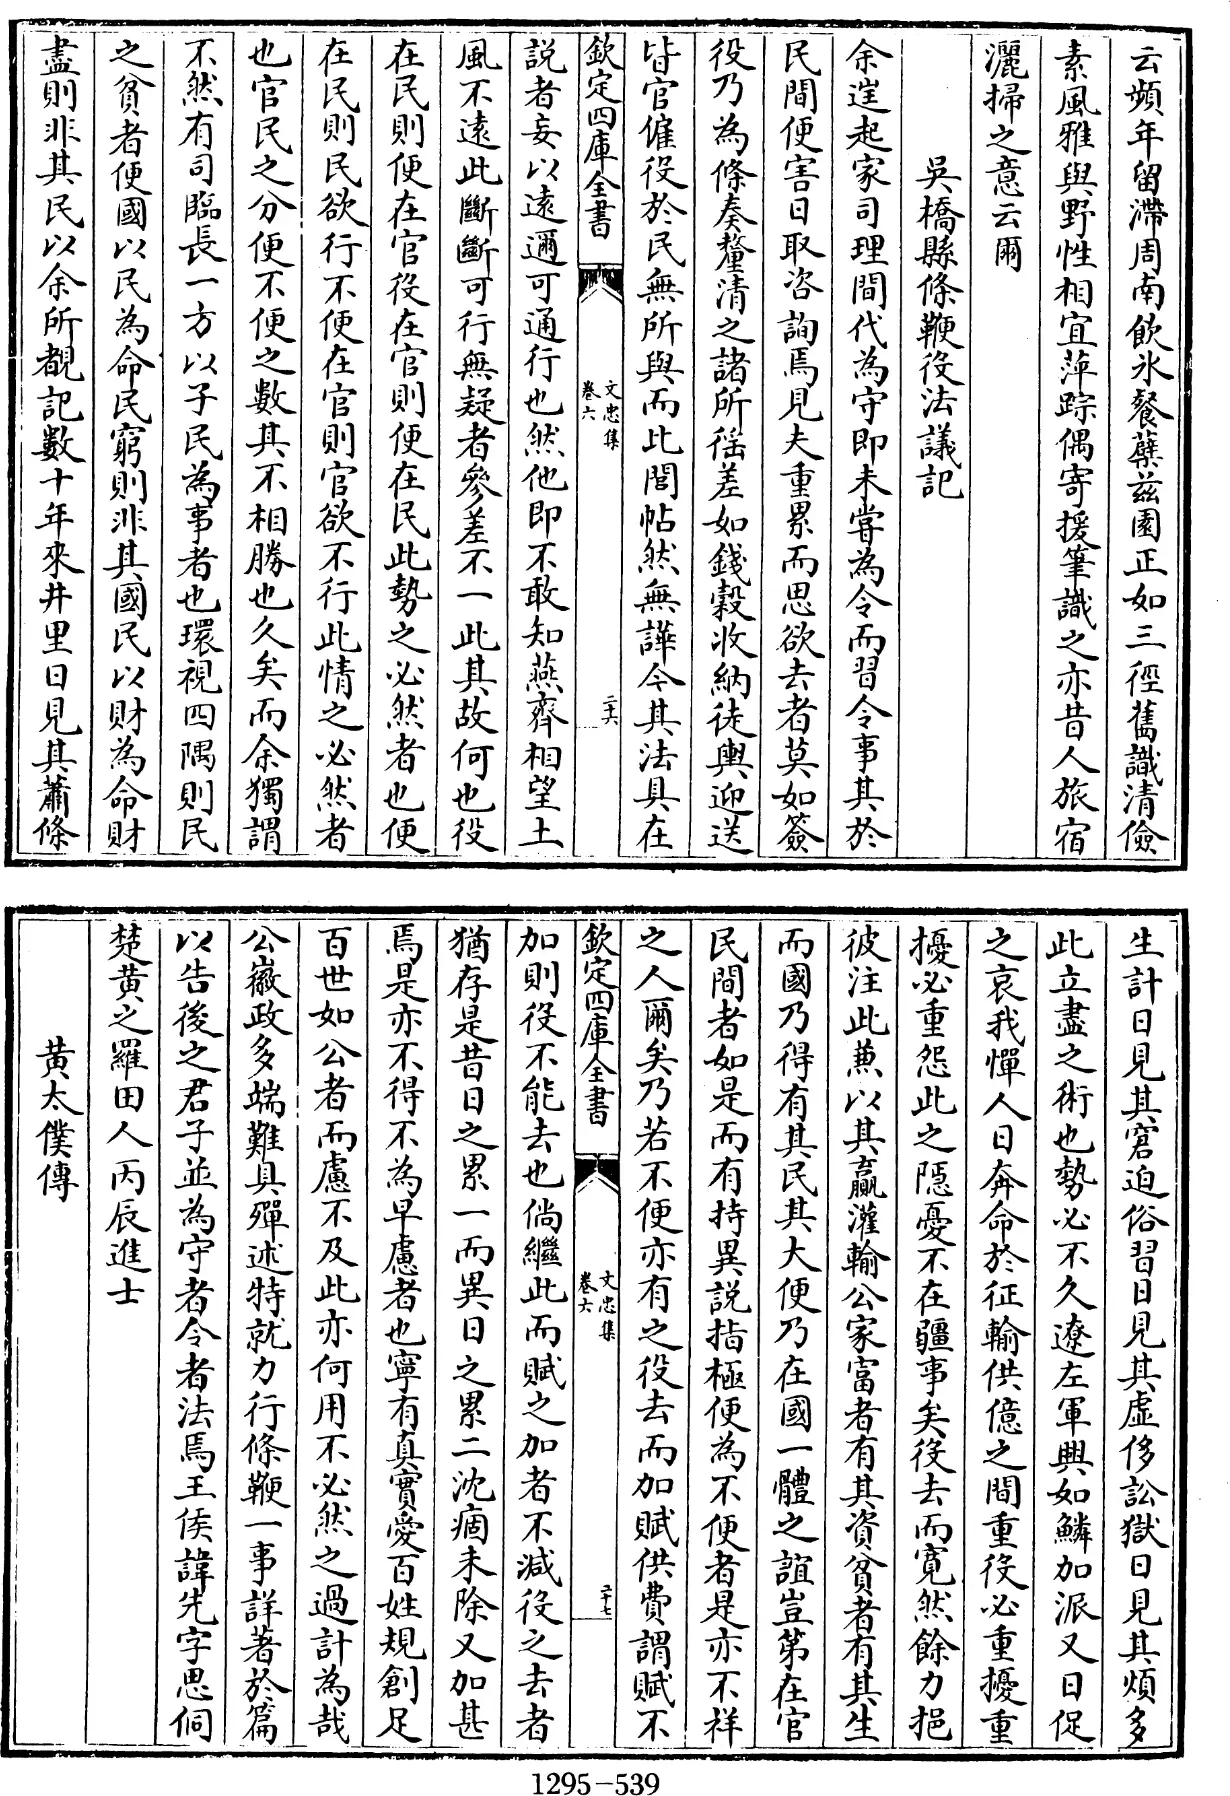 云頻年留滯周南飲氷餐蘖茲園正如三徑舊識清儉
素風雅與野性相宜萍踪偶寄援筆識之亦昔人旅宿
灑掃之意云爾
吳橋縣條鞭役法議記
余逰起家司理間代為守即未嘗為令而習令事其於
民間便害日取咨詢焉見夫重累而思欲去者莫如簽
役乃為條奏釐清之諸所徭差如錢穀收納徒輿迎送
皆官僱役於民無所與而此閭帖然無譁今其法具在
欽定四庫全書
文忠集
卷六
二十六
説者妄以遠邇可通行也然他即不敢知燕齊相望土
風不遠此斷斷可行無疑者參差不一此其故何也役
在民則便在官役在官則便在民此勢之必然者也便
在民則民欲行不便在官則官欲不行此情之必然者
也官民之分便不便之數其不相勝也久矣而余獨謂
不然有司臨長一方以子民為事者也環視四隅則民
之貧者便國以民為命民窮則非其國民以財為命財
盡則非其民以余所覩記數十年來井里日見其蕭條
生計日見其窘迫俗習日見其虛侈訟獄日見其煩多
此立盡之術也勢必不久遼左軍興如鱗加派又日促
之哀我憚人日奔命於征輸供億之間重役必重擾重
擾必重怨此之隱憂不在疆事矣役去而寛然餘力挹
彼注此兼以其贏灌輸公家富者有其資貧者有其生
而國乃得有其民其大便乃在國一體之誼豈第在官
民間者如是而有持異説指極便為不便者是亦不祥
之人爾矣乃若不便亦有之役去而加賦供費謂賦不
欽定四庫全書
文忠集
卷六
二十七
加則役不能去也倘繼此而賦之加者不減役之去者
猶存是昔日之累一而異日之累二沈痼未除又加甚
焉是亦不得不為早慮者也寧有真實愛百姓規創足
百世如公者而慮不及此亦何用不必然之過計為哉
公徽政多端難具殫述特就力行條鞭一事詳著於篇
以告後之君子並為守者令者法焉王侯諱先字思侗
楚黄之羅田人丙辰進士
黄太僕傳
1295-539